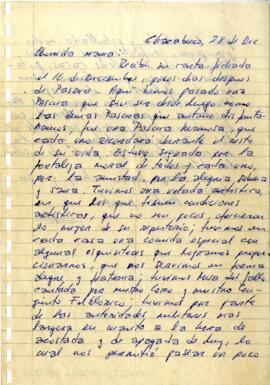 Chacabuco, 28 de Dic.
Querida mamá:
Recibí su carta fechada
el 16 de Diciembre, pocos dias después
de Pascua. Aquí hemos pasado una
Pascua que sin ser desde luego como
las demas Pascuas que antaño disfruta-
bamos, fue una Pascua hermosa, que
cada uno recordará durante el resto
de su vida. Estuvo signada por la
fortaleza moral de todos y cada uno,
por la amistad, por la alegria
y sana. Tuvimos una velada artística,
en que los que tienen condiciones
artísticas, que no son pocos, ofrecieron
lo mejor de su repertorio; tuvimos en
cada casa una comida especial con
algunas que logramos propor-
cionarnos, que nos servimos en forma
alegre, y fraterna; tuvimos misa del gallo
cantada por nuestro coro y nuestro con-
junto folclórico; tuvimos por parte
de las autoridades militares mas
en cuanto a la hora de
acostada y de apagada de luz, lo
cual nos permitió pasar un poco